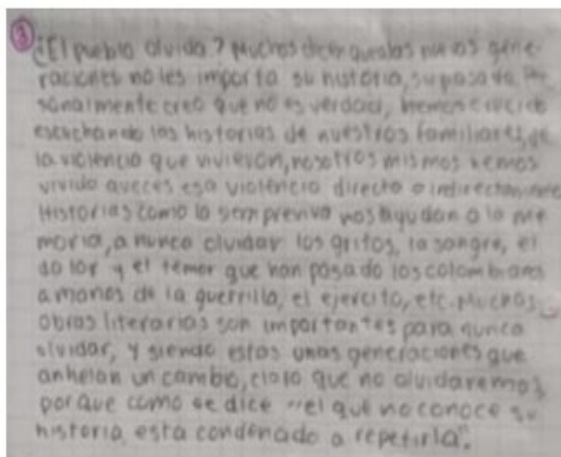 ③ ¿El pueblo olvida? Muchos dicen que a las nuevas gene-
raciones no les importa su historia, su pasado. Per-
sonalmente creo que no es verdad, hemos crecido
escuchando las historias de nuestros familiares, de
la violencia que vivieron, nosotros mismos hemos
vivido aveces esa violencia directa o indirectamente
Historias como la siempreviva nos ayudan a la me
moria, a nunca olvidar los gritos, la sangre, el
dolor y el temor que han pasado los colombianos
a manos de la guerrilla, el ejercito, etc. Muchas
obras literarias son importantes para nunca
olvidar, y siendo estas unas generaciones que
anhelan un cambio, claro que no olvidaremos
porque como se dice "el que no conoce su
historia esta condenado a repetirla".